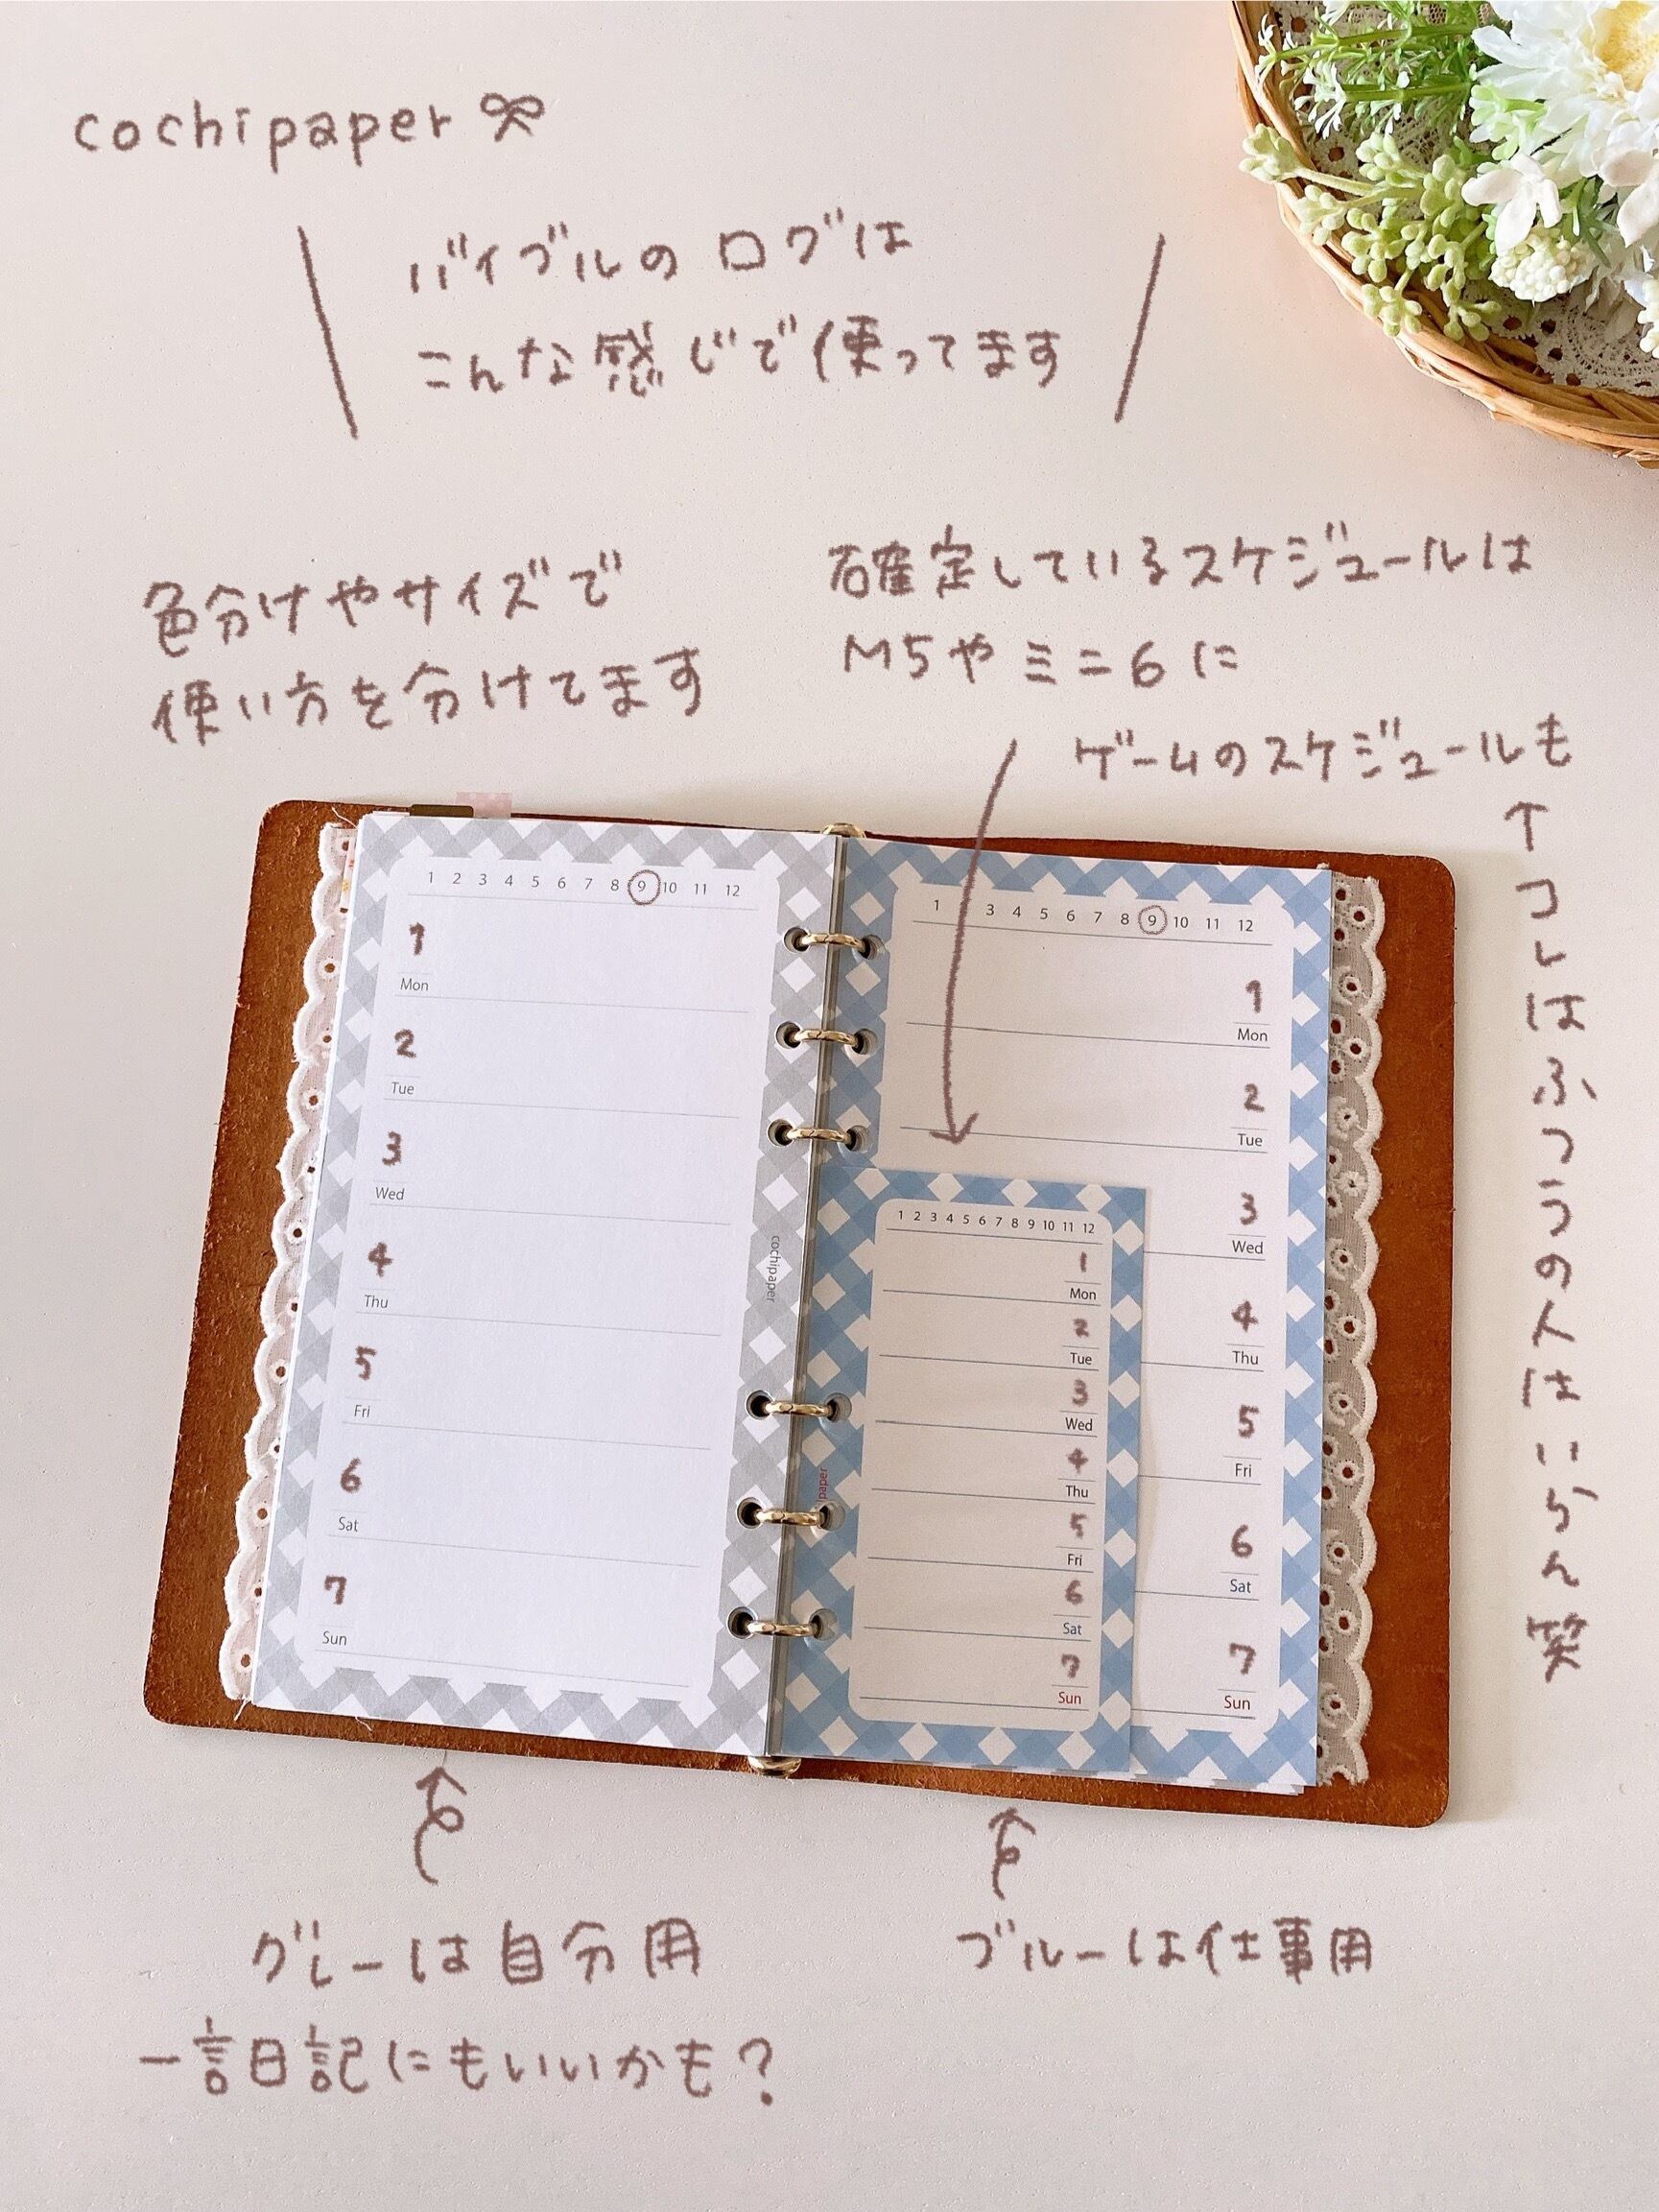 cochipaper
バイブルのログは
こんな感じで使ってます
色分けやサイズで
使い方を分けてます
確定しているスケジュールは
M5やミニ6に
ゲームのスケジュールも
↑コレはふつうの人はいらん笑
1 2 3 4 5 6 7 8 9 10 11 12
1
Mon
2
Tue
3
Wed
4
Thu
5
Fri
6
Sat
7
Sun
cochipaper
1 3 4 5 6 7 8 9 10 11 12
1
Mon
2
Tue
3
Wed
4
Thu
5
Fri
6
Sat
7
Sun
1 2 3 4 5 6 7 8 9 10 11 12
1
Mon
2
Tue
3
Wed
4
Thu
5
Fri
6
Sat
7
Sun
paper
グレーは自分用
一言日記にもいいかも?
ブルーは仕事用